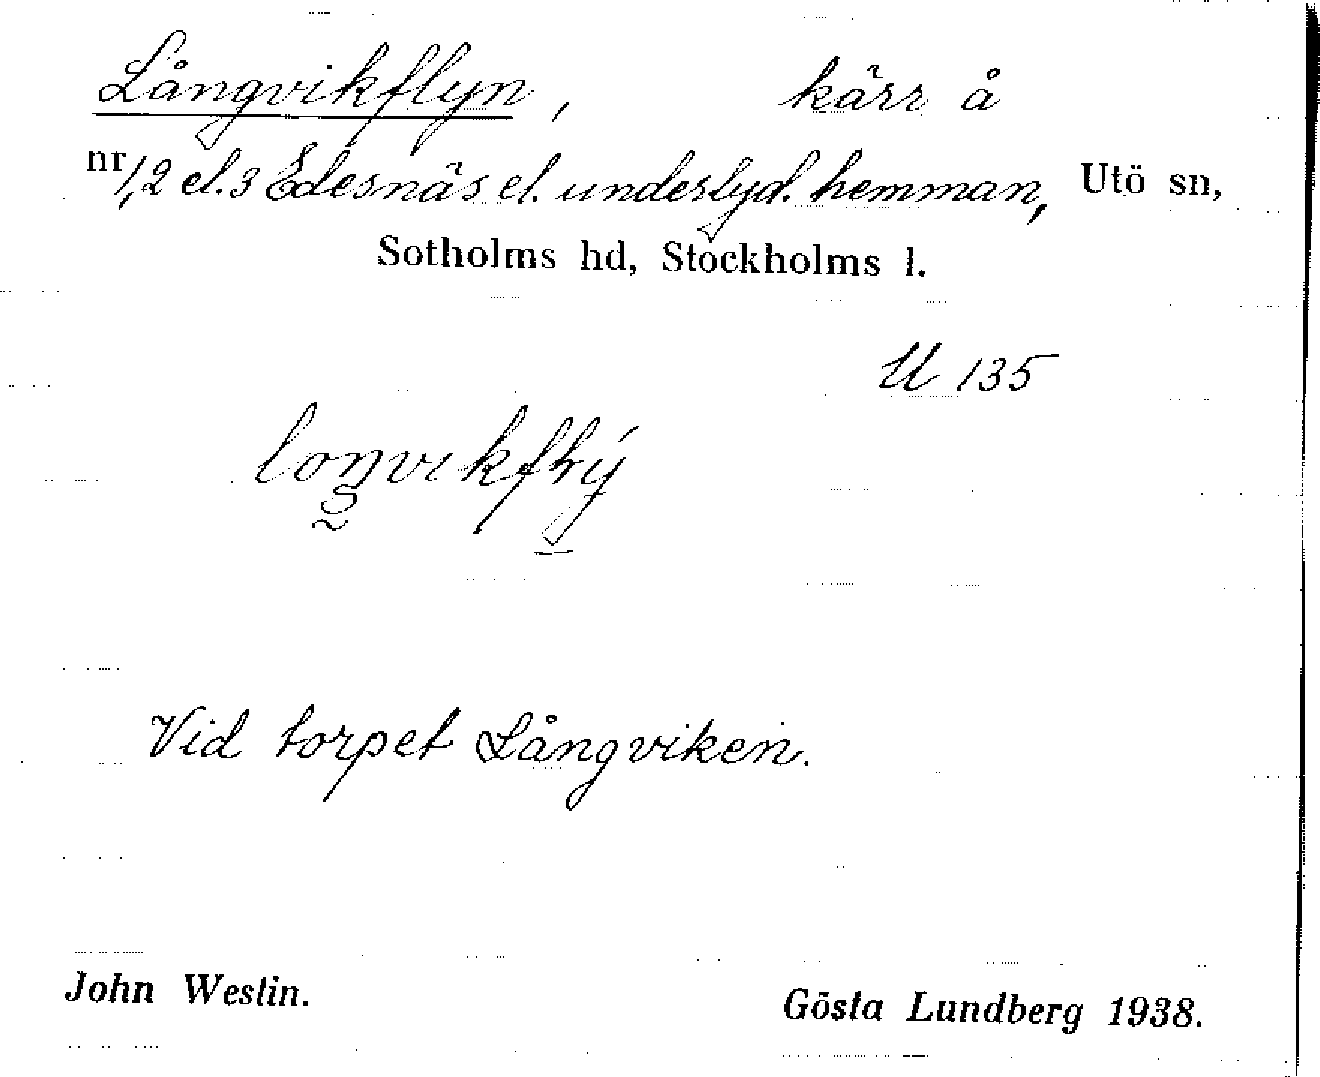 Långvikflyn, kärr å
nr 1, 2 el. 3 Edesnäs el. underlyd. hemman, Utö sn,
Sotholms hd, Stockholms l.
U 135
Vid torpet Långviken.
John Westin. Gösta Lundberg 1938.